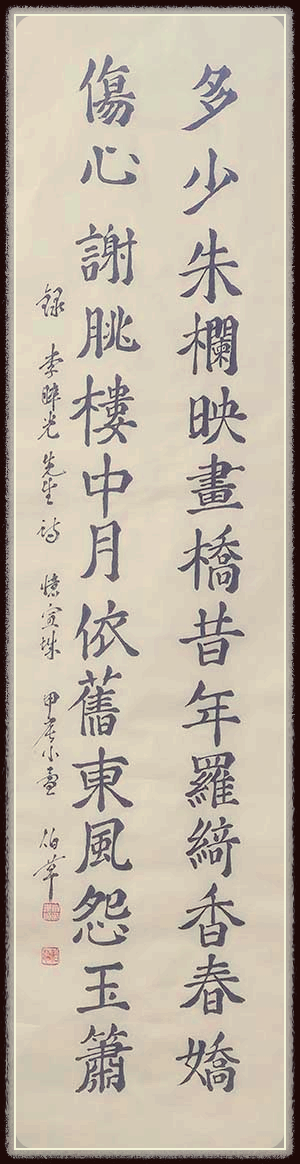 多少朱欄映畫橋昔年羅綺香春嬌
傷心謝眺樓中月依舊東風怨玉簫
錄 李睟光先生詩 憶宣城 甲辰小暑 伯草